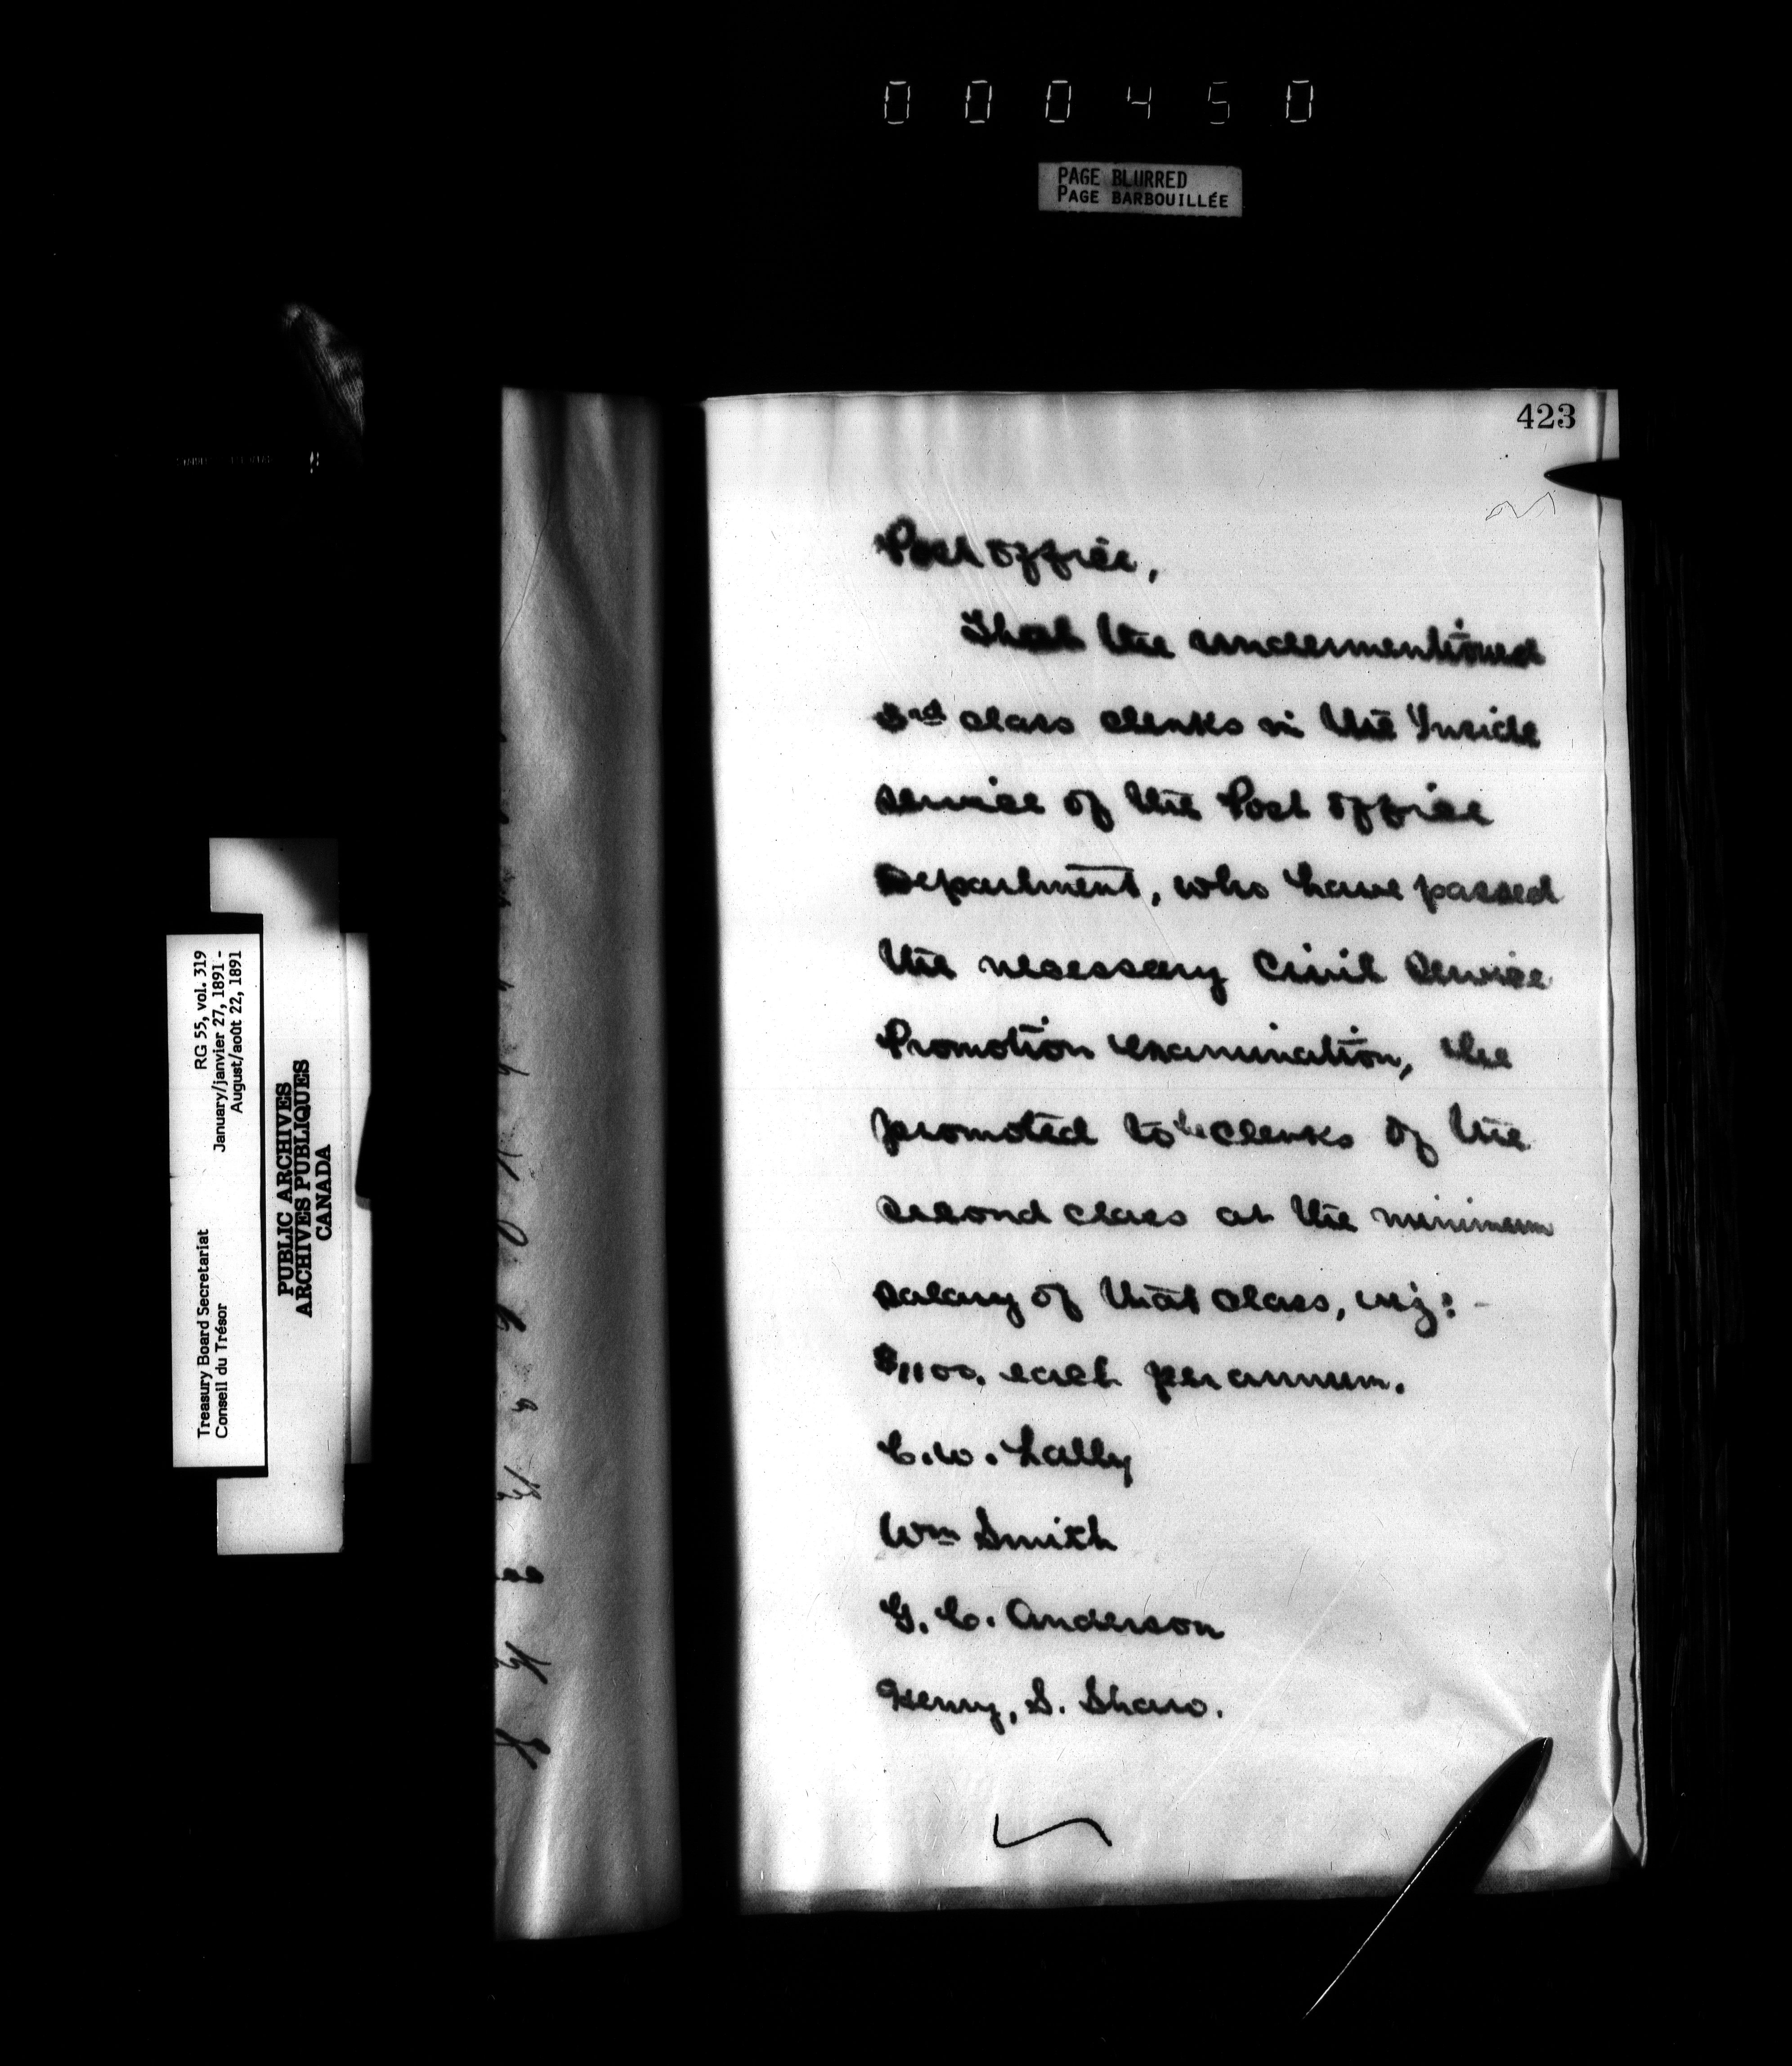 000450
PAGE BLURRED
PAGE BARBOUILLÉE
423
Post Office,
That the undermentioned
3rd class clerks in the Inside
service of the Post Office
Department, who have passed
the necessary Civil Service
Promotion examination, be
promoted to be clerks of the
second class at the minimum
salary of that class, viz: -
$1100. each per annum.
C. W. Lally
Wm Smith
G. C. Anderson
Henry, S. Shaw.
Treasury Board Secretariat RG 55, vol. 319
Conseil du Trésor January/janvier 27, 1891 -
August/août 22, 1891
PUBLIC ARCHIVES
ARCHIVES PUBLIQUES
CANADA